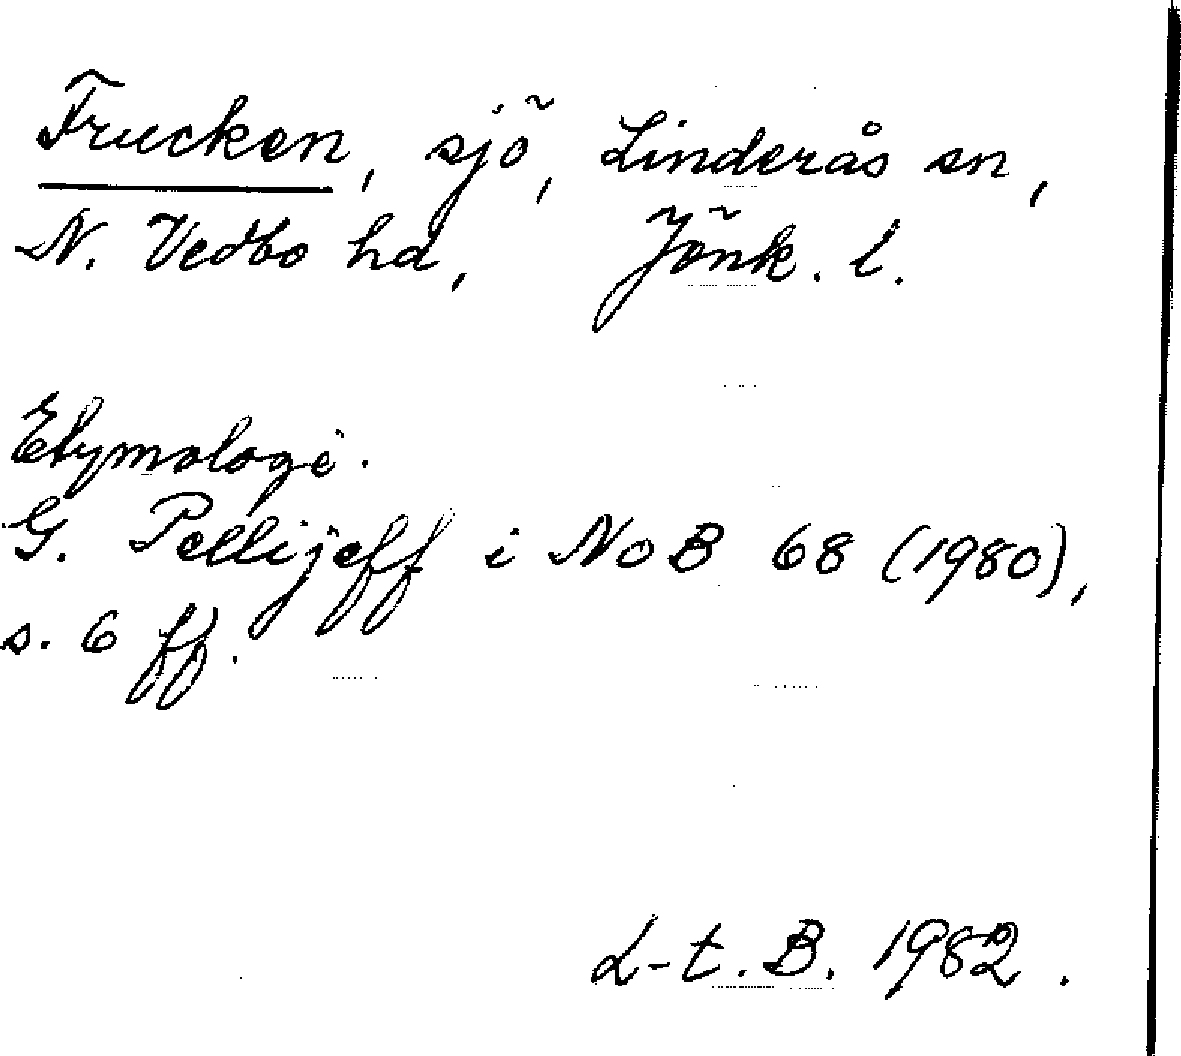 Frucken, sjö, Linderås sn,
N. Vedbo hd, Jönk. l.
Etymologi.
G. Pellijeff i NoB 68 (1980),
s. 6 ff.
L-t. B. 1982.